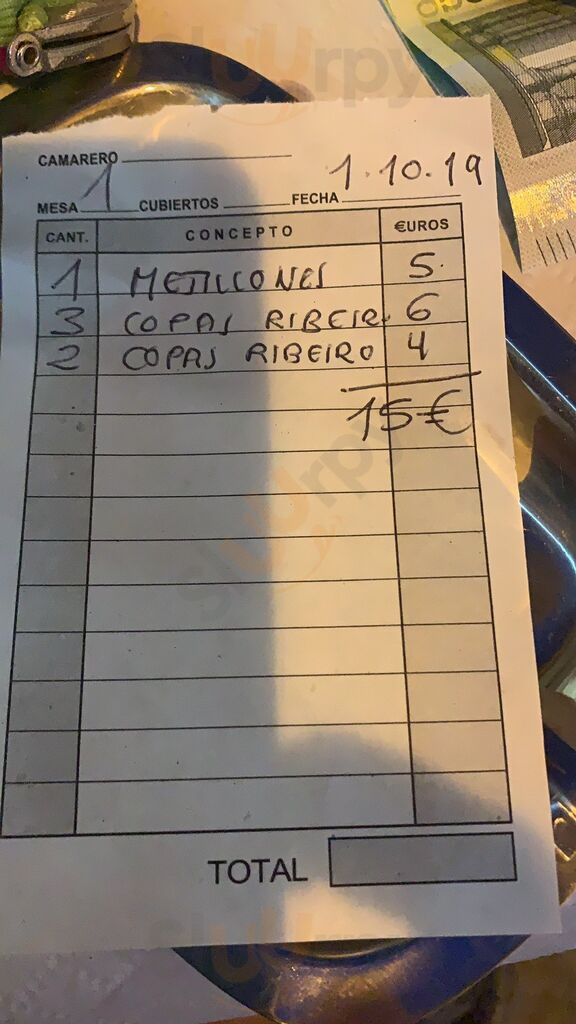 CAMARERO
1.10.19
MESA 1 CUBIERTOS FECHA
CANT. CONCEPTO €UROS
1 MEJILLONES 5
3 COPAS RIBEIR. 6
2 COPAS RIBEIRO 4
15€
TOTAL
sluurpy
sluurpy
sluurpy